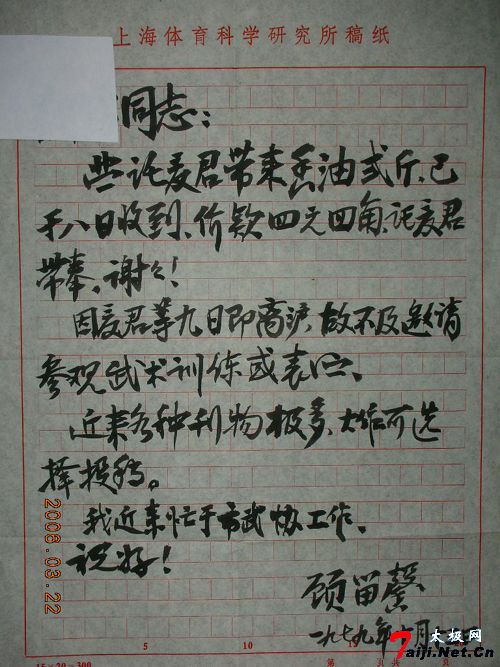 上海体育科学研究所稿纸
同志：
些託麦君带来香油弍斤，已
于八日收到，价款四元四角，託麦君
带奉。谢々！
因麦君等九日即离沪，故不及邀请
参观武术训练或表演。
近来各种刊物极多，大作可选
择投稿。
我近来忙于市武协工作。
祝好！
顾留馨
一九七九年六月
2008.03.22
5
10
15×20=300
第 共 页
太极网
Taiji.Net.Cn